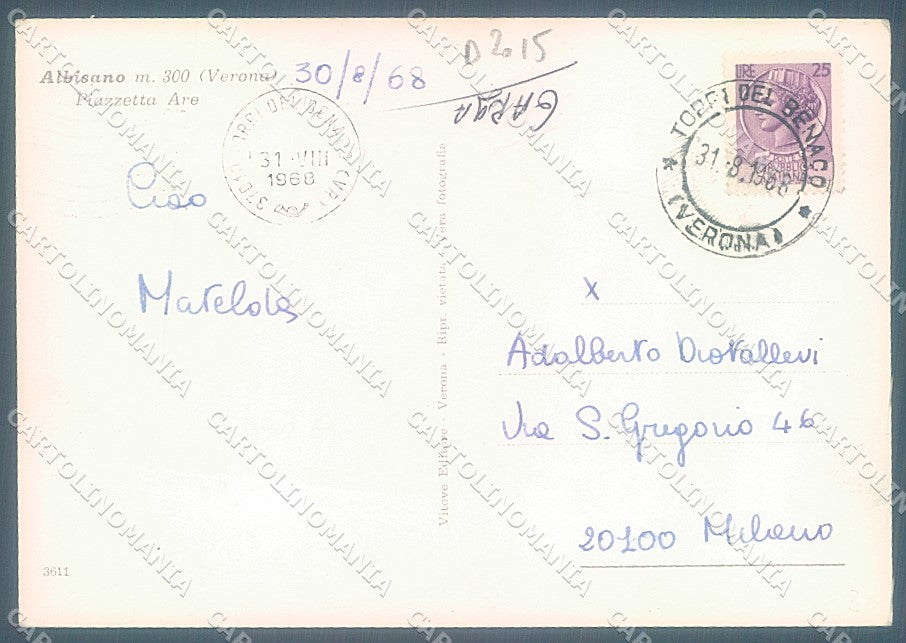 D 2015
Albisano m. 300 (Verona)
Piazzetta Are
30/8/68
GARDA
TORRI DEL BENACO (VR)
31 · VIII
1968
LIRE 25
* TORRI DEL BENACO *
31.8.1968
(VERONA)
Ciao
Matelda
Vitove Editore - Verona - Ripr. vietata - Vera fotografia
x
Adalberto Diotallevi
Via S. Gregorio 46
20100 Milano
3611
CARTOLINOMANIA